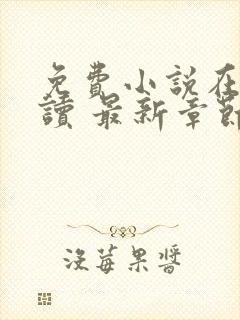 免費小說在
讀 最新章節
沒莓果醬